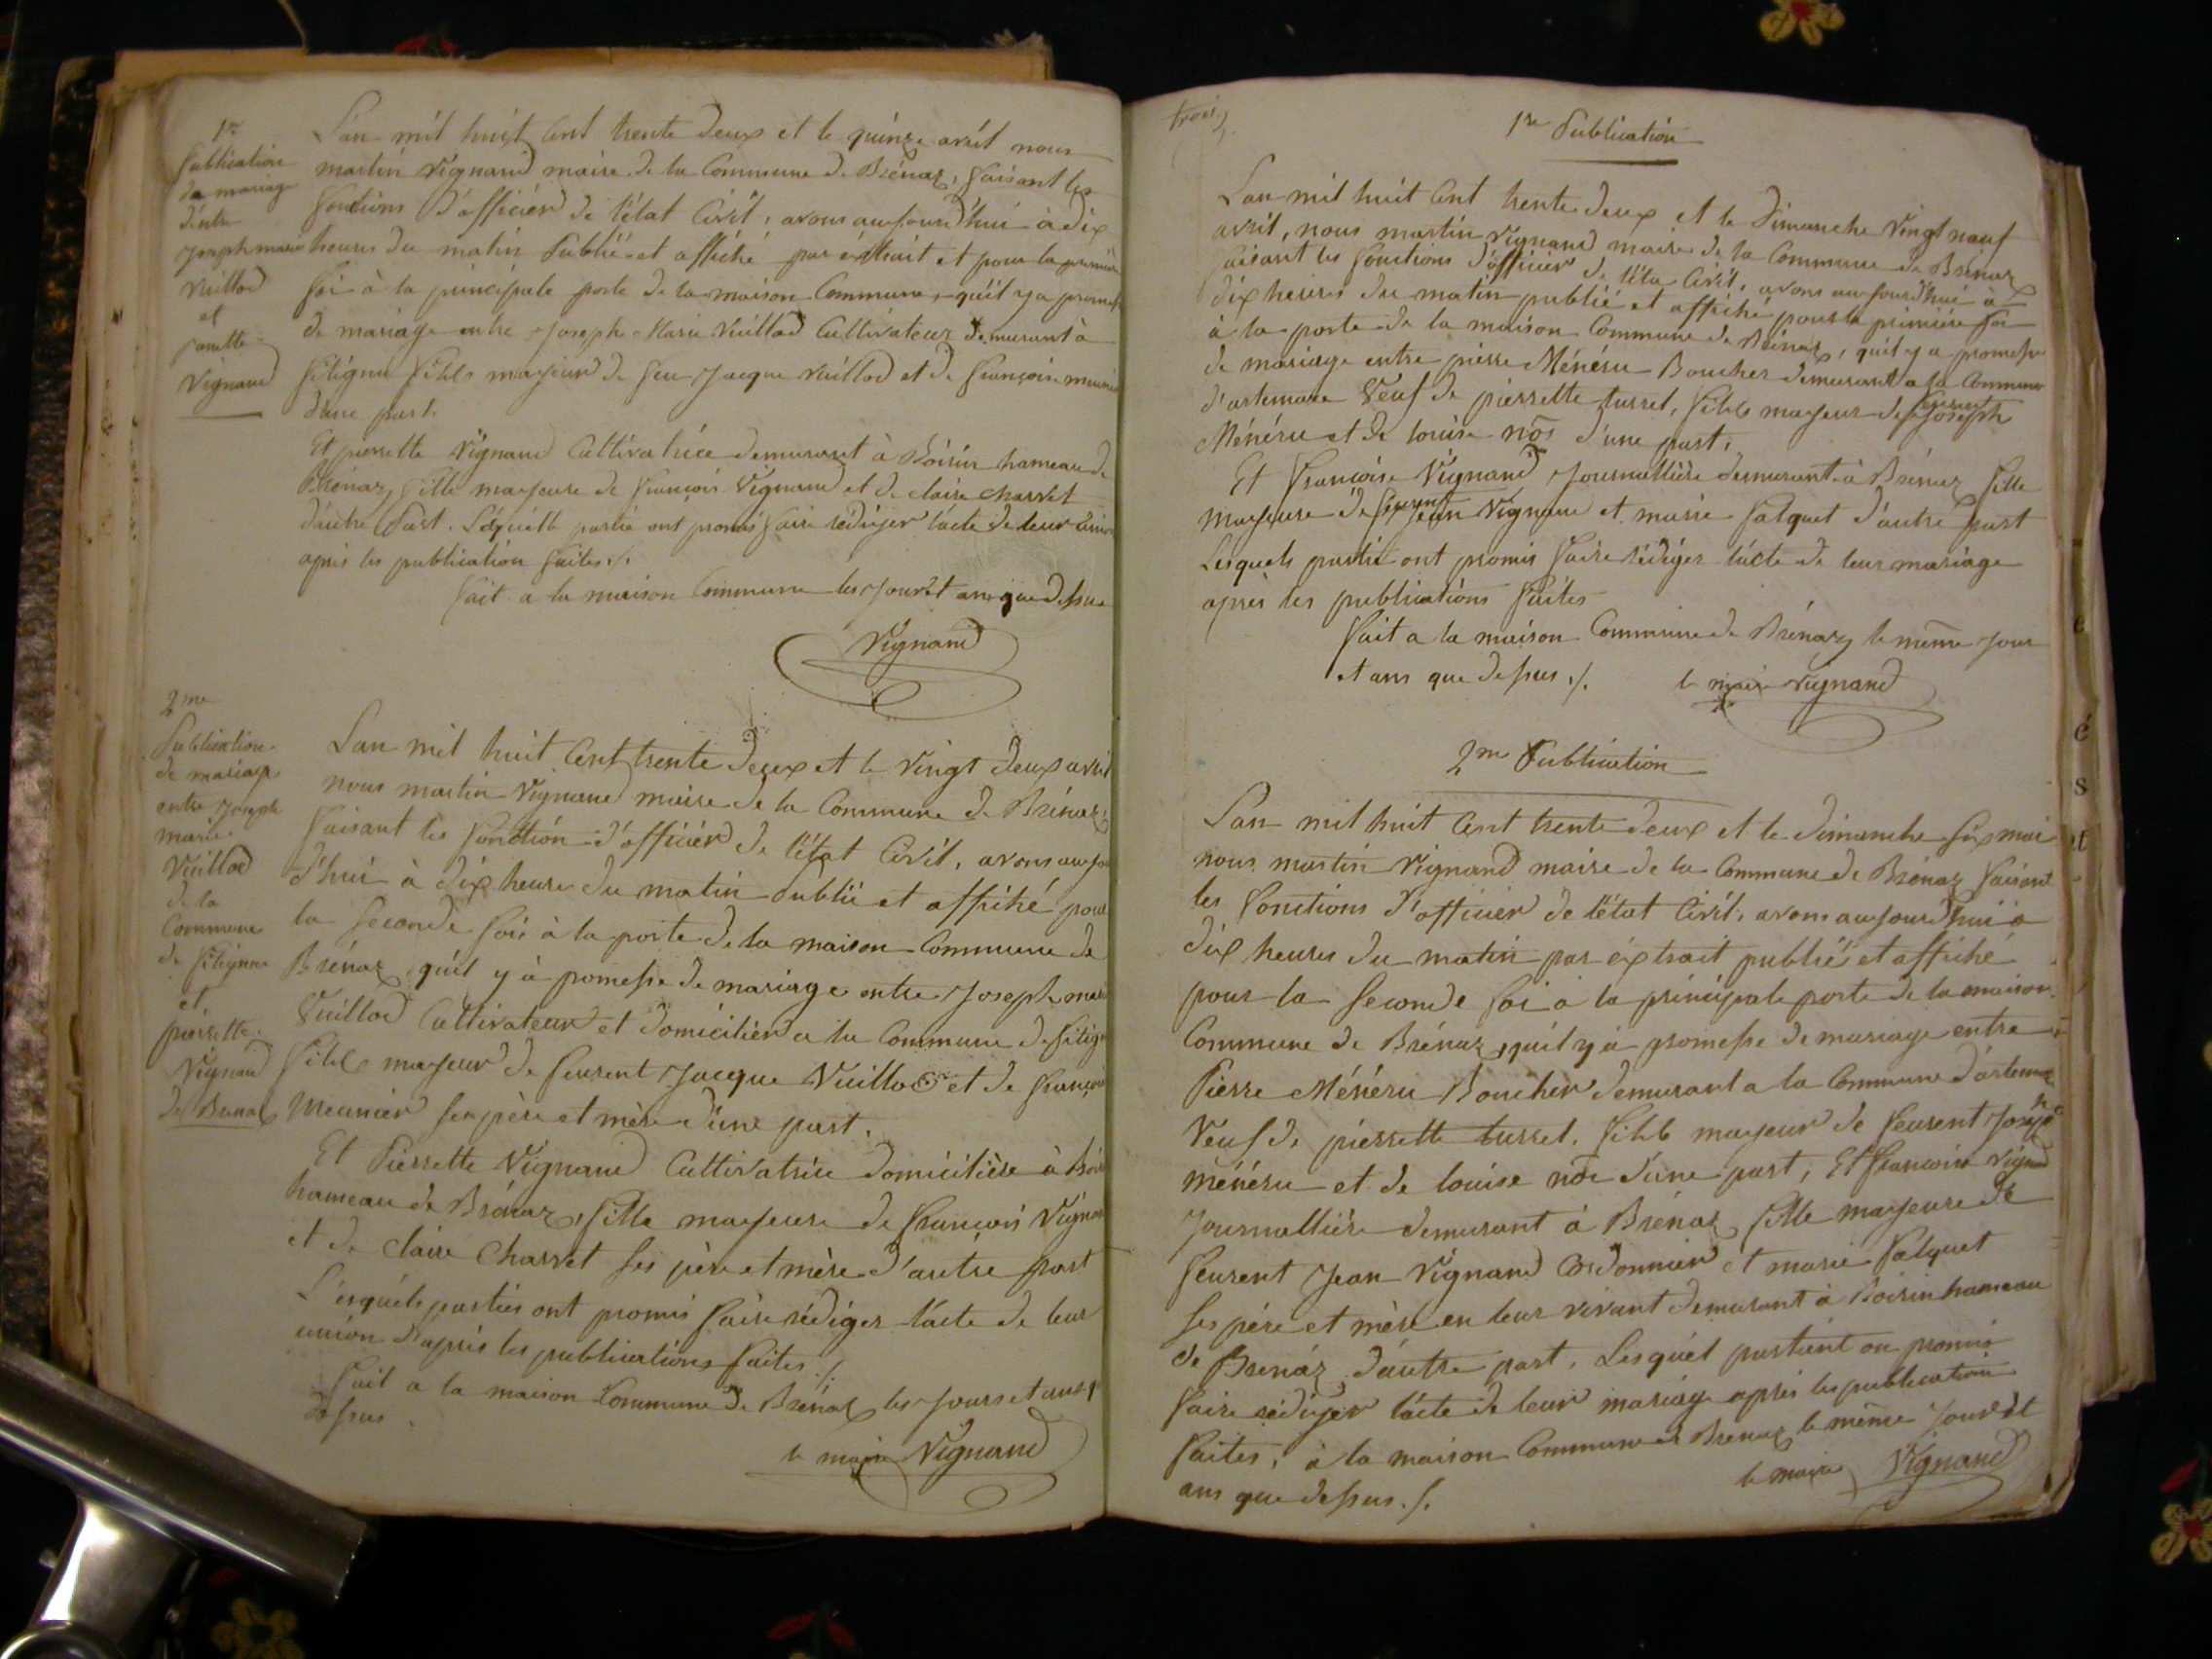 1re
Publication
de mariage
d'entre
joseph marie
Vuillod
et
Vignand
L'an mil huit Cent trente deux et le quinze avril nous
martin Vignand maire de la Commune de Brénaz, faisant les
fonctions d'officier de l'état Civil, avons aujourd'hui à dix
heures du matin Publié et affiché par éxtrait et pour la premiere
foi à la principale porte de la maison Commune, qu'il y a promesse
de mariage entre Joseph Marie Vuillod Cultivateur demurant à
fitignu fils majeur de feu Jacque Vuillod et de françoise
d'une part.
Et pierrette Vignand Cultivatrice demurant à Boisin hameau de
Brénaz, fille majeure de françois Vignand et de claire charvet
d'autre Part. Léquélle partie ont promis faire rédiger l'acte de leur union
après les publication faites ./.
fait a la maison Commune les jour et an que dessus
Vignand
2me
Publication
de mariage
entre Joseph
marie
Vuillod
de la
Commune
de fitignu
et
pierrette
Vignand
de Brenaz
L'an mil huit Cent trente deux et le vingt deux avril
nous martin Vignand maire de la Commune de Brénaz,
faisant les fonction d'officiér de l'état Civil, avons aujou
d'hui à dix heure du matin Publié et affiché pour
la seconde fois à la porte de la maison Commune de
Brénaz, qu'il y à pomesse de mariage entre Joseph marie
Vuillod Cultivateur et domicilier a la Commune de fitign
fils majeur de feurent Jacque Vuillod et de françoise
Meunier ses père et mère d'une part.
Et Pierrette Vignand Cultivatrice domicilière à Boisi
hameau de Brénaz, fille majeure de françois Vignan
et de claire Charvet ses père et mère d'autre part
Lésquéls parties ont promis faire rédiger l'acte de leur
union d'après les publications faites ./.
fait a la maison Commune de Brénaz les jours et ans q
dessus.
le maire Vignand
trois
1re Publication
L'an mil huit Cent trente deux et le Dimanche Vingt neuf
avril, nous martin Vignand maire de la Commune de Brénaz
faisant les fonctions d'officier de l'éta Civil, avons aujourd'hui à
dix heures du matin publié et affiché pour la primiére foi
à la porte de la maison Commune de Brénaz, qu'il y a promesse
de mariage entre pierre Ménéru Boucher demurant a la Commune
d'artemare Veuf de pierrette turrel, fils majeur de feurent Joseph
Ménéru et de louise d'une part,
Et françoise Vignand Journallière demurant à Brénaz fille
majeure de feurent Jean Vignand et marie falquet d'autre part
Lesquels partie ont promis faire rédiger l'acte de leur mariage
après les publications faites
fait a la maison Commune de Brénaz le même jour
et ans que dessus ./. le maire Vignand
2me Publication
L'an mil huit Cent trente deux et le dimanche six mai
nous martin Vignand maire de la Commune de Brénaz faisant
les fonctions d'officier de l'état Civil, avons aujourd'hui à
dix heures du matin par éxtrait publié et affiché
pour la seconde foi a la principale porte de la maison
Commune de Brénaz, qu'il y à promesse de mariage entre
Pierre Ménéru Boucher demurant a la Commune d'artemar
Veuf de pierrette turrel. fils majeur de feurent Joseph
ménéru et de louise d'une part, Et françoise Vignand
Journallière demurant à Brénaz fille majeure de
feurent Jean Vignand Cordonnier et marie falquet
ses père et mère en leur vivant demurant à Boisin hameau
de Brenáz d'autre part, Lesquél partient on promis
faire rédiger l'acte de leur mariage après les publication
faites, à la maison Commune de Brenaz le même jour et
ans que dessus ./. le maire Vignand